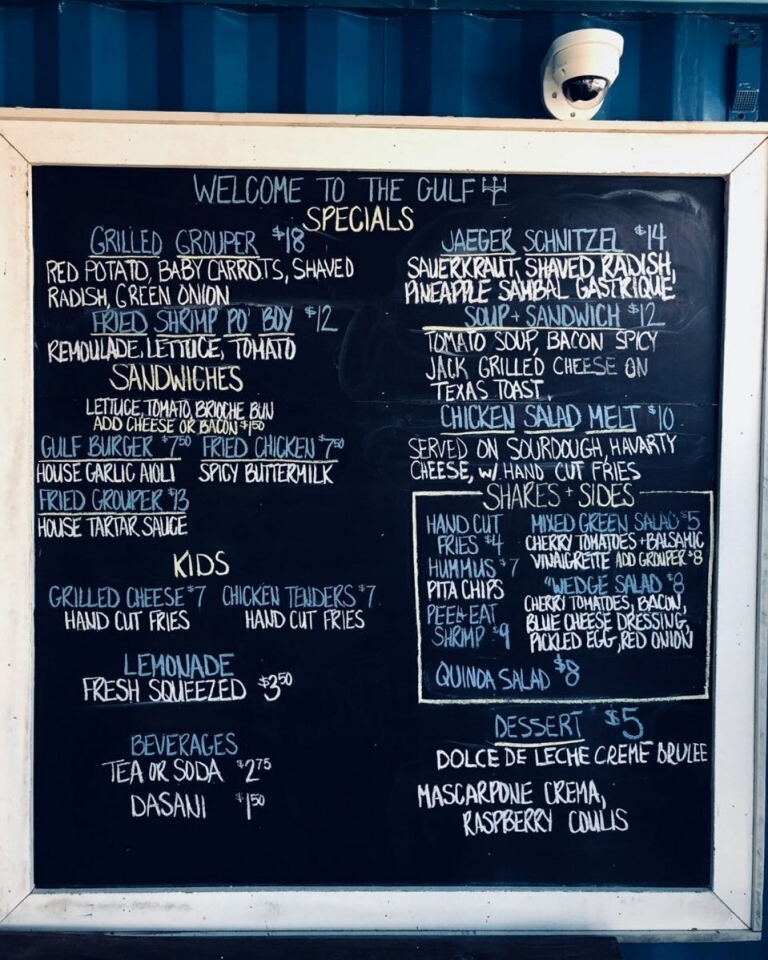 WELCOME TO THE GULF
SPECIALS
GRILLED GROUPER $18
RED POTATO, BABY CARROTS, SHAVED
RADISH, GREEN ONION
FRIED SHRIMP PO' BOY $12
REMOULADE, LETTUCE, TOMATO
SANDWICHES
LETTUCE, TOMATO, BRIOCHE BUN
ADD CHEESE OR BACON $1.50
GULF BURGER $7.50 FRIED CHICKEN $7.50
HOUSE GARLIC AIOLI SPICY BUTTERMILK
FRIED GROUPER $13
HOUSE TARTAR SAUCE
KIDS
GRILLED CHEESE $7 CHICKEN TENDERS $7
HAND CUT FRIES HAND CUT FRIES
LEMONADE
FRESH SQUEEZED $3.50
BEVERAGES
TEA OR SODA $2.75
DASANI $1.50
JAEGER SCHNITZEL $14
SAUERKRAUT, SHAVED RADISH,
PINEAPPLE SAMBAL GASTRIQUE
SOUP + SANDWICH $12
TOMATO SOUP, BACON SPICY
JACK GRILLED CHEESE ON
TEXAS TOAST.
CHICKEN SALAD MELT $10
SERVED ON SOURDOUGH, HAVARTY
CHEESE, W/ HAND CUT FRIES
SHARES + SIDES
HAND CUT
FRIES $4
HUMMUS $7
PITA CHIPS
PEEL + EAT
SHRIMP $9
QUINOA SALAD $8
MIXED GREEN SALAD $5
CHERRY TOMATOES + BALSAMIC
VINAIGRETTE ADD GROUPER $8
"WEDGE SALAD $8
CHERRY TOMATOES, BACON,
BLUE CHEESE DRESSING,
PICKLED EGG, RED ONION
DESSERT $5
DOLCE DE LECHE CREME BRULEE
MASCARPONE CREMA,
RASPBERRY COULIS